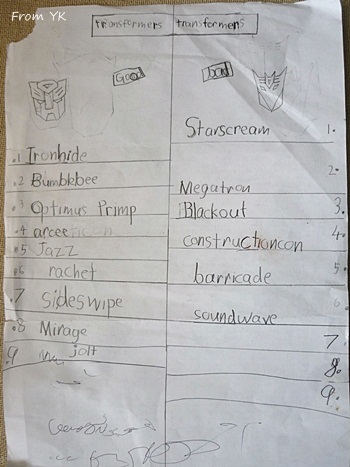 From YK
transformers transformers
Good bad
.1 Ironhide
.2 Bumblebee
.3 Optimus Primp
.4 arcee
.5 Jazz
.6 rachet
.7 sideswipe
.8 Mirage
9 jolt
Starscream 1.
2.
Megatron
Blackout 3.
constructioncon 4.
barricade 5.
soundwave 6
7.
8.
9.